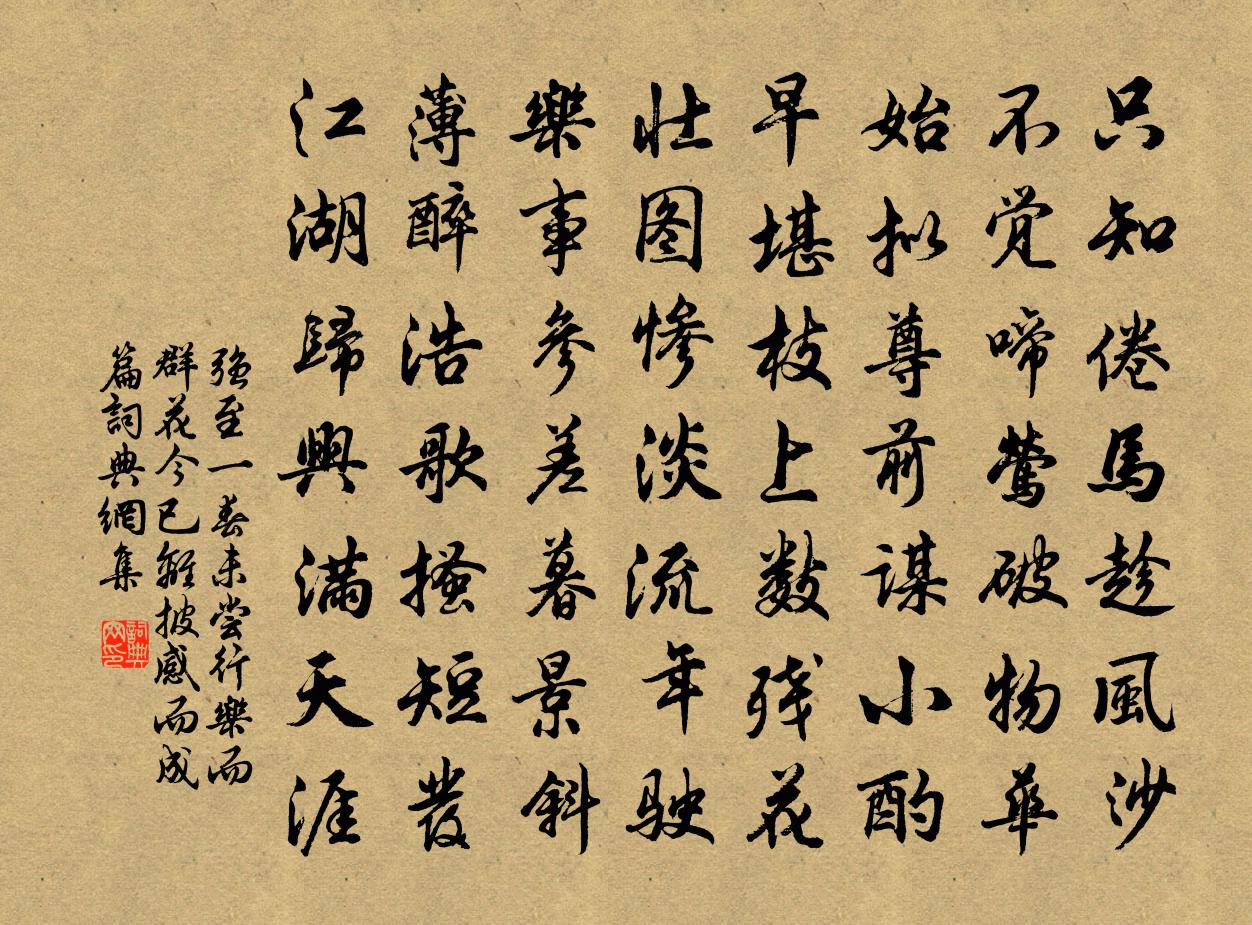 只知倦馬趁風沙
不觉啼莺破物華
始拟尊前謀小酌
早堪枝上數残花
壮图惨淡流年駛
樂事參差暮景斜
薄醉浩歌搔短发
江湖歸興满天涯
强至一春未尝行樂而
群花今已離披感而成
篇詞典網集
詞典
网印